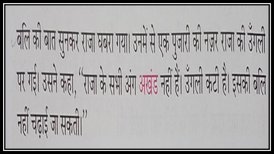 बलि की बात सुनकर राजा घबरा गया। उनमें से एक पुजारी की नज़र राजा की उँगली
पर गई। उसने कहा, “राजा के सभी अंग अखंड नहीं हैं। उँगली कटी है। इसकी बलि
नहीं चढ़ाई जा सकती।”